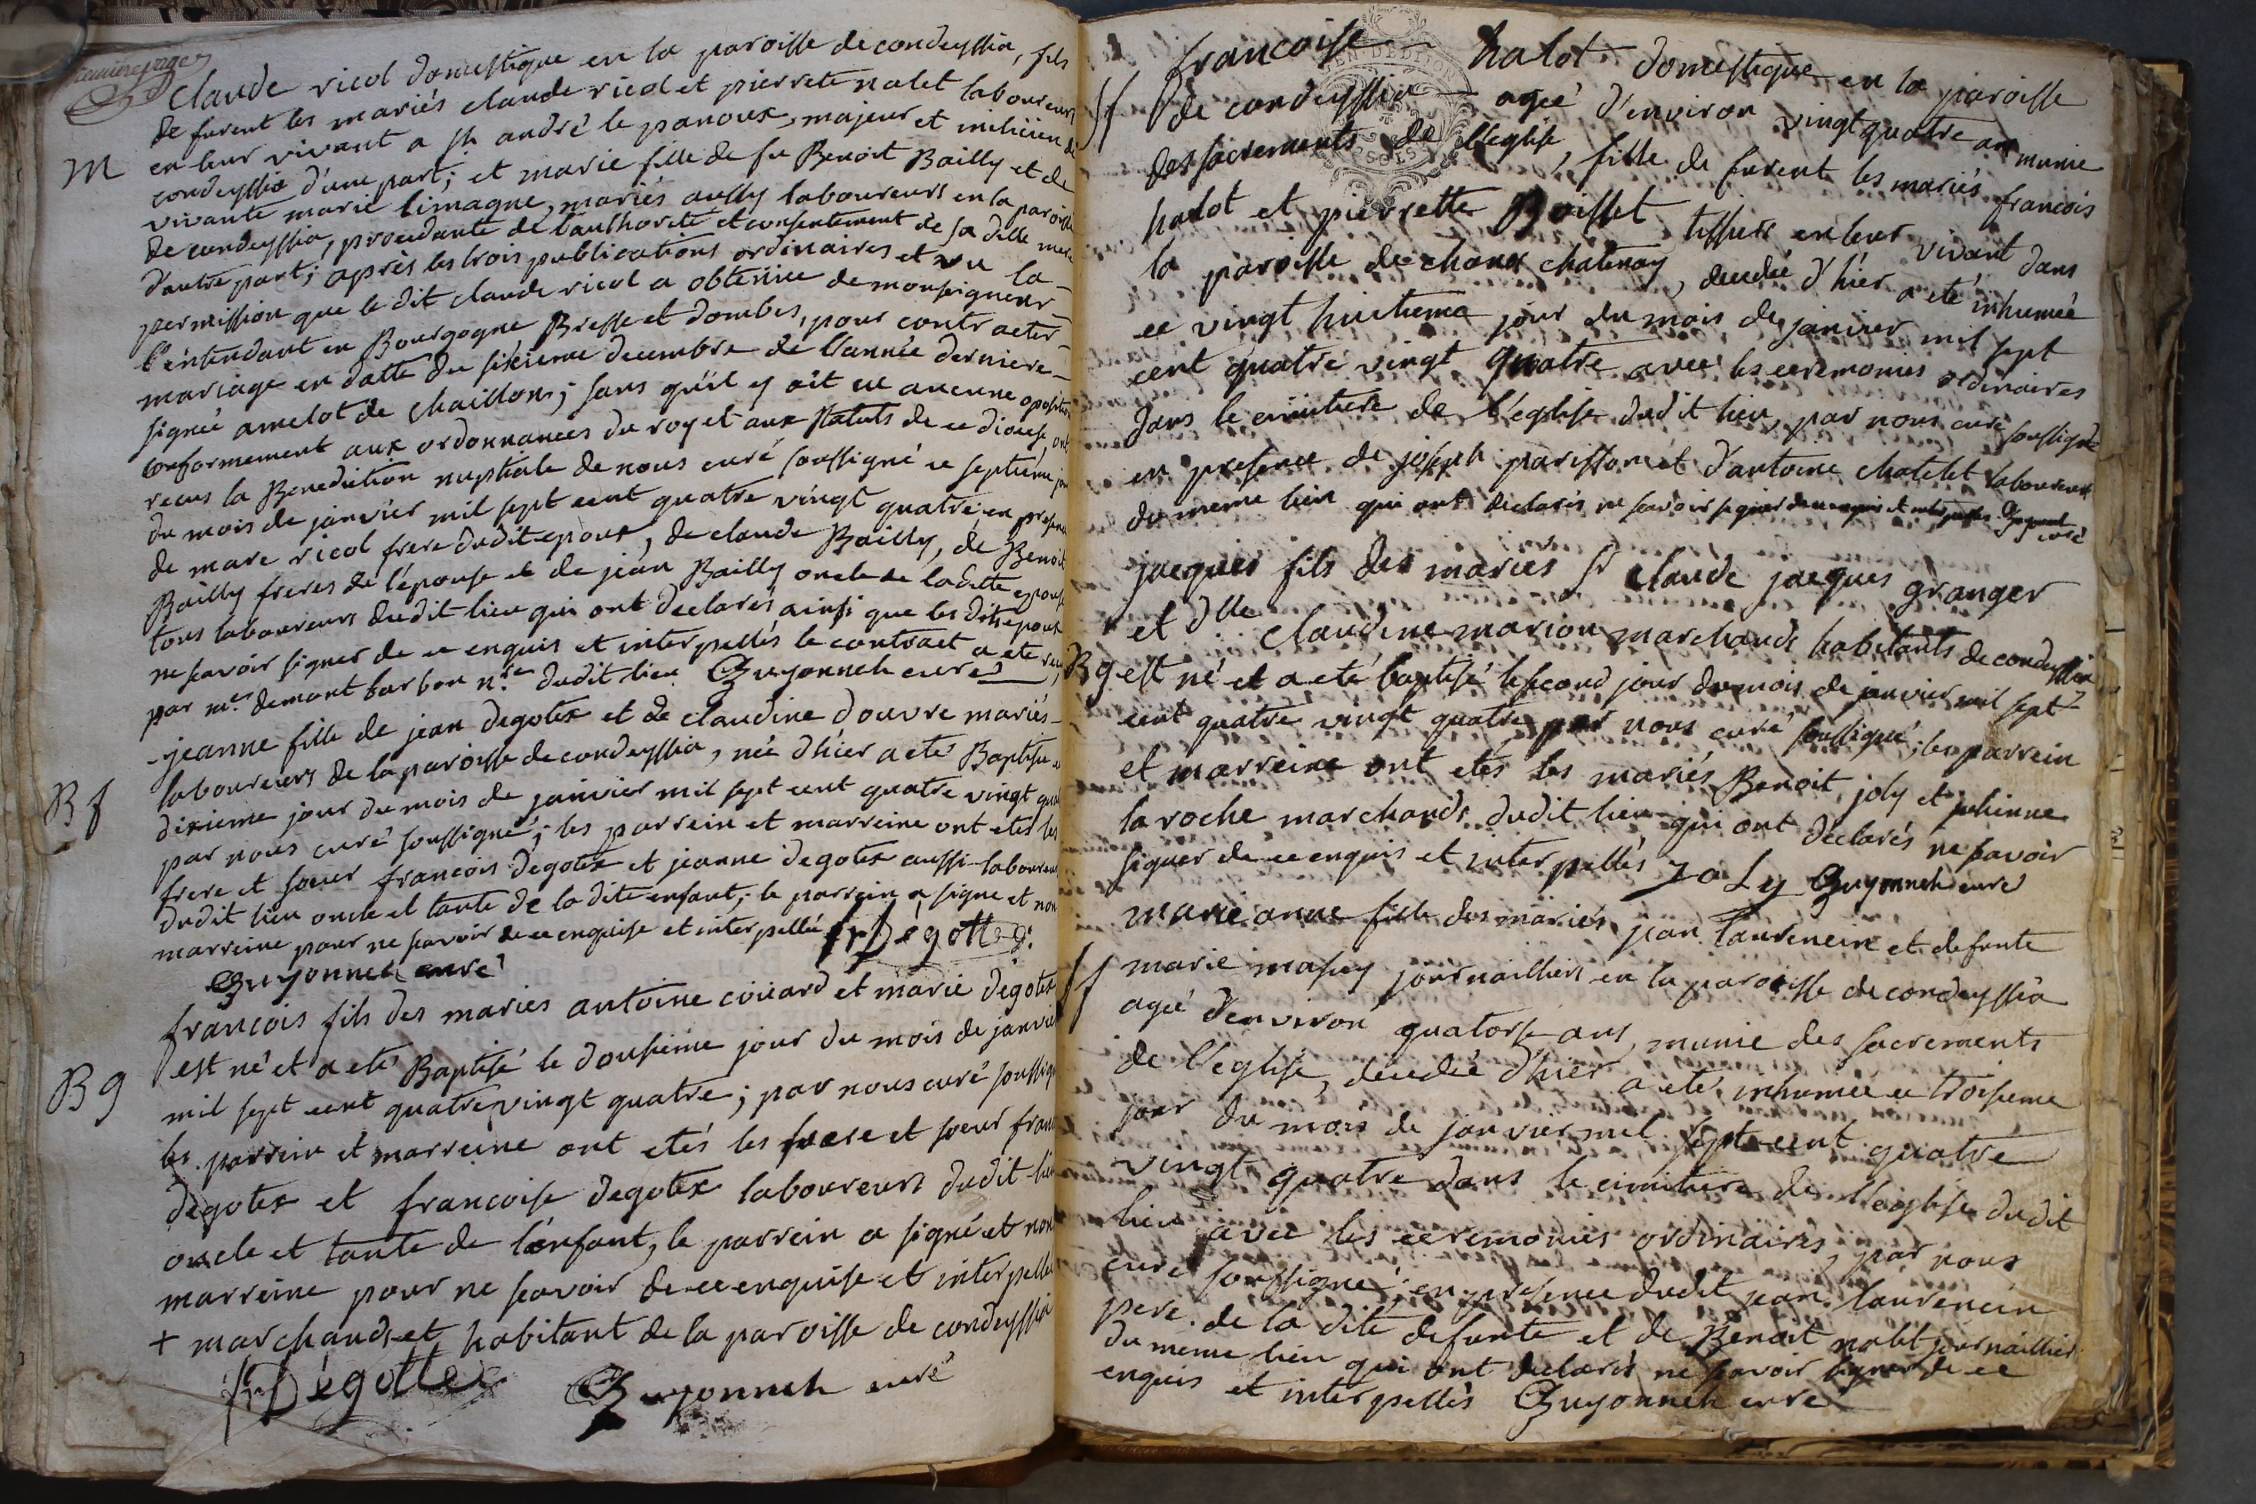 premiere page
claude ricol domestique en la paroisse de condeyssia, fils
de furent les mariés claude ricol et pierrete nalet laboureurs
M
en leur vivant a st andré le panoux, majeur et milicien de
condeyssia d'une part; et marie fille de fu Benoit Bailly et de
vivante marie limagne, mariés aussy laboureurs en la paroisse
de condeyssia, procedante de l'authorité et consentement de sa ditte mere
d'autre part; après les trois publications ordinaires et vu la
permission que le dit claude ricol a obtenüe de monseigneur
l'entendant en Bourgogne Bresse et dombes, pour contracter
mariage en datte du sisieme decembre de l'année derniere
signée amelot de chaillons; sans qu'il y ait eu aucune oposition
conformement aux ordonnances du roy et aux statuts de ce diocese ont
recus la Benediction nuptiale de nous curé soussigné ce septieme jour
du mois de janvier mil sept cent quatre vingt quatre en presence
de marc ricol frere dudit epoux, de claude Bailly, de Benoit
Bailly freres de l'épouse et de jean Bailly oncle de la ditte epouse
tous laboureurs dudit lieu qui ont declarés ainsi que les dits epoux
ne scavoir signer de ce enquis et interpellés le contract a eté recu
par me. demont barbon nre dudit lieu Guyonneh curé
jeanne fille de jean degotex et de claudine douvre mariés
laboureurs de la paroisse de condeyssia, née d'hier a eté Baptisée
B f
dixieme jour du mois de janvier mil sept cent quatre vingt quatre
par nous curé soussigné; les parrein et marreine ont etés les
frere et soeur francois degotex et jeanne degotex aussi laboureurs
dudit lieu oncle et tante de la dite enfant; le parrein a signe et non
marreine pour ne scavoir de ce enquise et interpellé fr Dégottex
Guyonneh curé
francois fils des maries antoine coüard et marie dégotex
est né et a eté Baptisé le dousieme jour du mois de janvier
B g
mil sept cent quatre vingt quatre; par nous curé soussigné
les parrein et marreine ont etés les frere et soeur francois
degotex et francoise degotex laboureurs dudit lieu
oncle et tante de l'enfant, le parrein a signé et non
marreine pour ne scavoir de ce enquise et interpellée
+ marchands et habitant de la paroisse de condeyssia
fr Dégottex Guyonneh curé
francoise halot domestique en la paroisse
Sf
de condeyssia agée d'environ vingt quatre ans munie
des sacrements de l'eglise, fille de furent les mariés francois
halot et pierrette Boisset tissiers en leur vivant dans
la paroisse de chanox chatenay, decedée d'hier a eté inhumée
ce vingt huitieme jour du mois de janvier mil sept
cent quatre vingt quatre avec les ceremonies ordinaires
dans le cimitiere de l'eglise dudit lieu, par nous curé soussigné
en presence de joseph parisson et d'antoine chatelet laboureurs
du meme lieu qui ont declarés ne scavoir signer de ce enquis et interpellés Guyonneh curé
jacques fils des mariés Sr claude jacques granger
et dlle claudine marion marchands habitants de condeyssia
B g
est né et a eté baptisé le second jour du mois de janvier mil sept
cent quatre vingt quatre par nous curé soussigné; les parrein
et marreine ont etés les mariés Benoit joly et philienne
la roche marchands dudit lieu qui ont déclarés ne scavoir
signer de ce enquis et interpellés Joly Guyonneh curé
marie anne fille des mariés jean laurencin et defunte
Sf
marie masuy journailliers en la paroisse de condeyssia
agée d'environ quatorse ans, munie des sacrements
de l'eglise, decedée d'hier a eté inhumée ce troisieme
jour du mois de janvier mil sept cent quatre
vingt quatre dans le cimitiere de l'eglise dudit
lieu avec les ceremonies ordinaires, par nous
curé soussigné; en presence dudit jean laurencin
pere de la dite defunte et de Benoit nalet journaillier
du meme lieu qui ont declarés ne scavoir signer de ce
enquis et interpellés Guyonneh curé